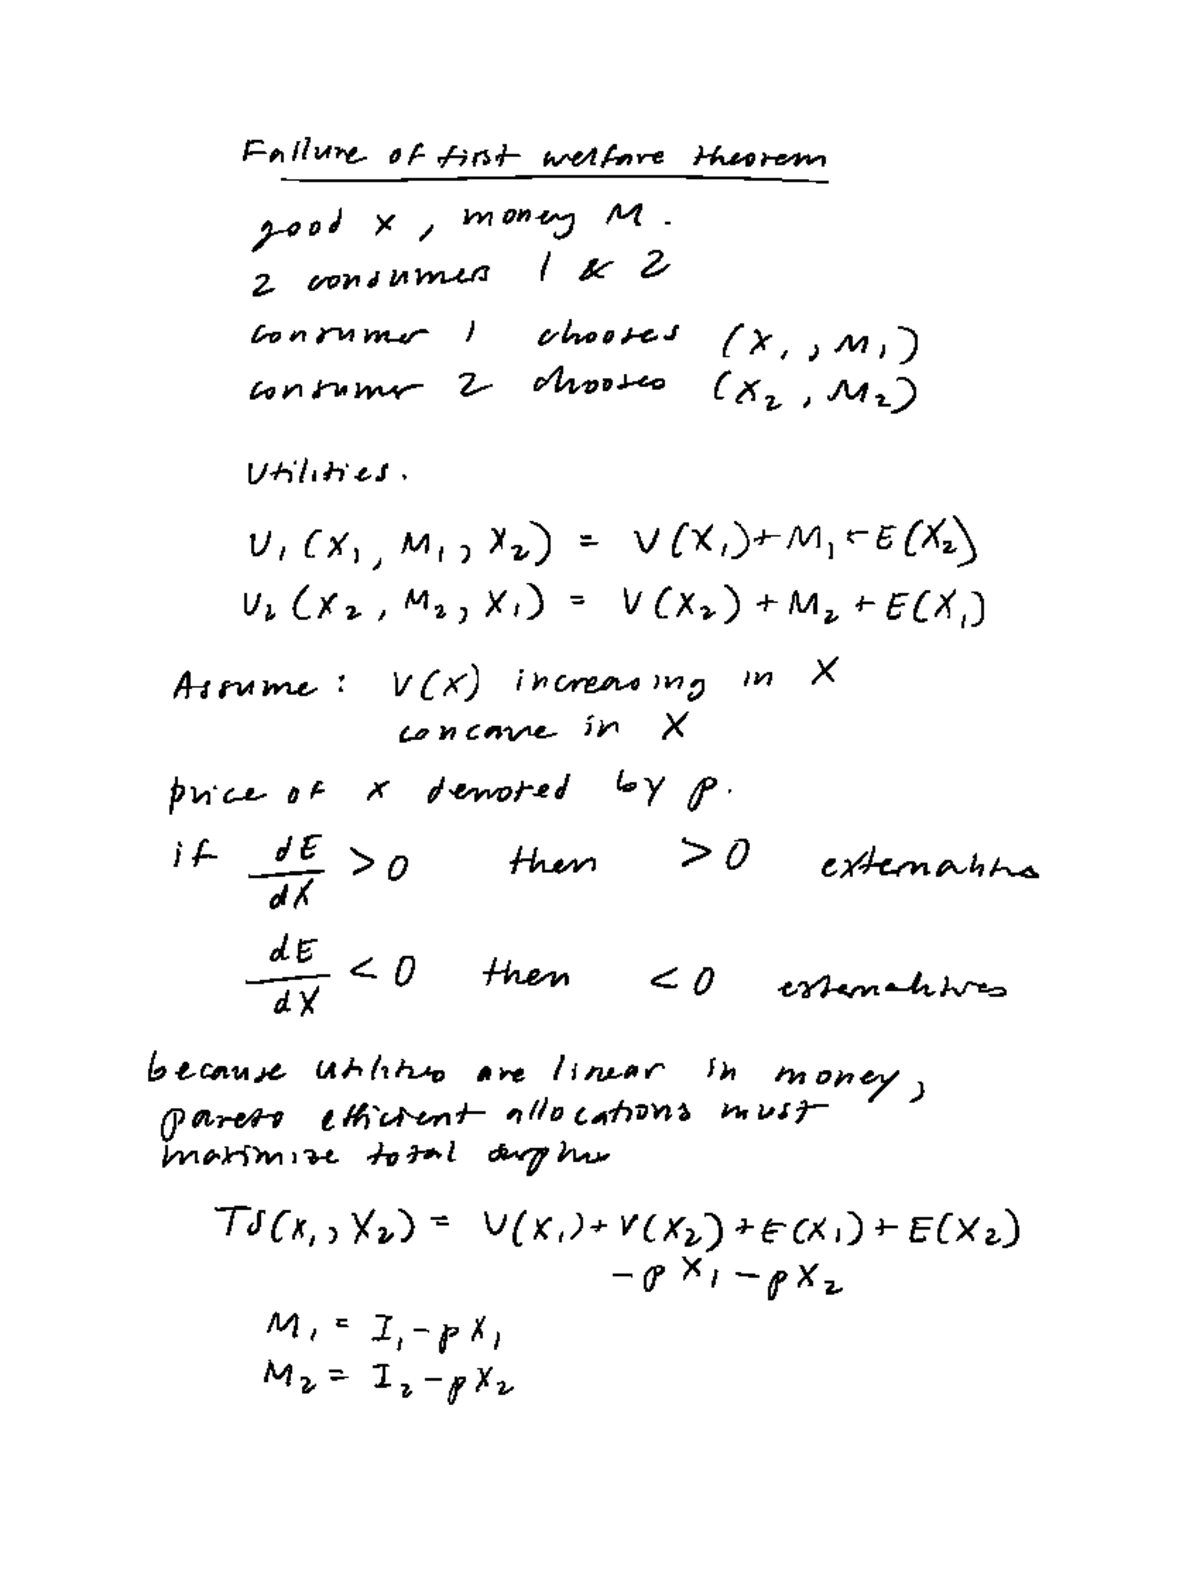 Failure of first welfare theorem
good x, money M.
2 consumers 1 & 2
consumer 1 chooses (X₁, M₁)
consumer 2 chooses (X₂, M₂)
Utilities.
U₁(X₁, M₁, X₂) = V(X₁)+M₁+E(X₂)
U₂(X₂, M₂, X₁) = V(X₂)+M₂+E(X₁)
Assume: V(X) increasing in X
concave in X
price of x denoted by p.
if dE/dX >0 then >0 externalities
dE/dX <0 then <0 externalities
because utilities are linear in money,
pareto efficient allocations must
maximize total surplus
TS(X₁, X₂) = V(X₁)+V(X₂)+E(X₁)+E(X₂)
-pX₁-pX₂
M₁ = I₁-pX₁
M₂ = I₂-pX₂